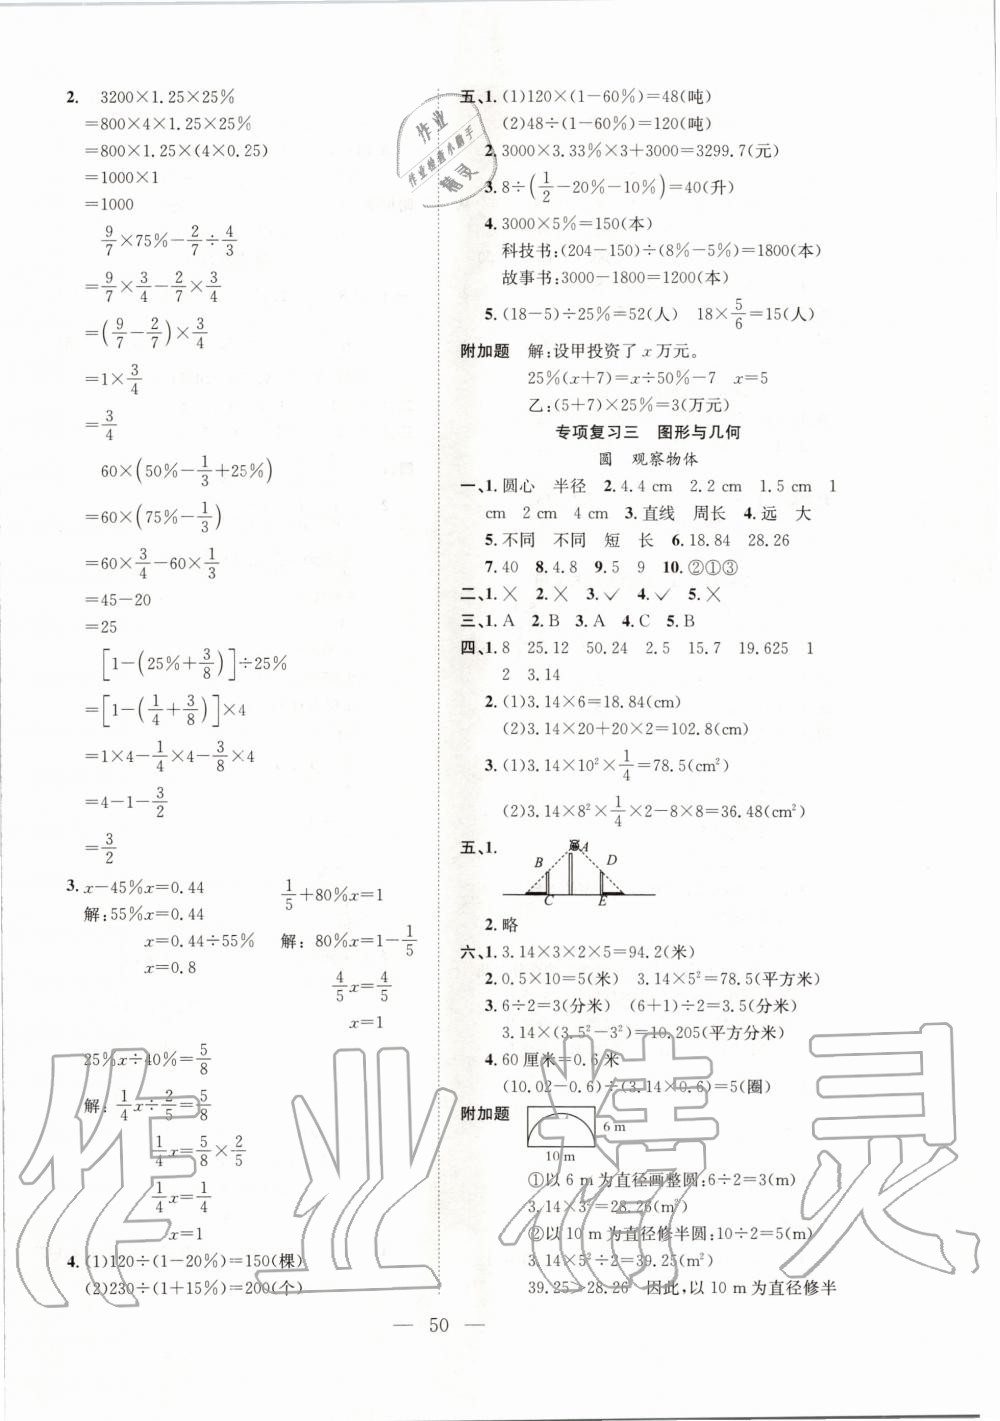 2. 3200×1.25×25%
=800×4×1.25×25%
=800×1.25×(4×0.25)
=1000×1
=1000
9/7×75%−2/7÷4/3
=9/7×3/4−2/7×3/4
=(9/7−2/7)×3/4
=1×3/4
=3/4
60×(50%−1/3+25%)
=60×(75%−1/3)
=60×3/4−60×1/3
=45−20
=25
[1−(25%+3/8)]÷25%
=[1−(1/4+3/8)]×4
=1×4−1/4×4−3/8×4
=4−1−3/2
=3/2
3. x−45%x=0.44 1/5+80%x=1
解:55%x=0.44
x=0.44÷55% 解: 80%x=1−1/5
x=0.8 4/5x=4/5
x=1
25%x÷40%=5/8
解: 1/4x÷2/5=5/8
1/4x=5/8×2/5
1/4x=1/4
x=1
4. (1)120÷(1−20%)=150(棵)
(2)230÷(1+15%)=200(个)
五、1. (1)120×(1−60%)=48(吨)
(2)48÷(1−60%)=120(吨)
2. 3000×3.33%×3+3000=3299.7(元)
3. 8÷(1/2−20%−10%)=40(升)
4. 3000×5%=150(本)
科技书:(204−150)÷(8%−5%)=1800(本)
故事书:3000−1800=1200(本)
5. (18−5)÷25%=52(人) 18×5/6=15(人)
附加题 解:设甲投资了 x 万元。
25%(x+7)=x÷50%−7 x=5
乙:(5+7)×25%=3(万元)
专项复习三 图形与几何
圆 观察物体
一、1. 圆心 半径 2. 4.4 cm 2.2 cm 1.5 cm 1
cm 2 cm 4 cm 3. 直线 周长 4. 远 大
5. 不同 不同 短 长 6. 18.84 28.26
7. 40 8. 4.8 9. 5 9 10. ②①③
二、1. ╳ 2. ╳ 3. ✓ 4. ✓ 5. ╳
三、1. A 2. B 3. A 4. C 5. B
四、1. 8 25.12 50.24 2.5 15.7 19.625 1
2 3.14
2. (1)3.14×6=18.84(cm)
(2)3.14×20+20×2=102.8(cm)
3. (1)3.14×10²×1/4=78.5(cm²)
(2)3.14×8²×1/4×2−8×8=36.48(cm²)
五、1.
A
B D
C E
2. 略
六、1. 3.14×3×2×5=94.2(米)
2. 0.5×10=5(米) 3.14×5²=78.5(平方米)
3. 6÷2=3(分米) (6+1)÷2=3.5(分米)
3.14×(3.5²−3²)=10.205(平方分米)
4. 60 厘米=0.6 米
(10.02−0.6)÷(3.14×0.6)=5(圈)
附加题
6 m
10 m
①以 6 m 为直径画整圆:6÷2=3(m)
3.14×3²=28.26(m²)
②以 10 m 为直径修半圆:10÷2=5(m)
3.14×5²÷2=39.25(m²)
39.25>28.26 因此,以 10 m 为直径修半
— 50 —
作业
作业检查小助手
精灵
作业精灵